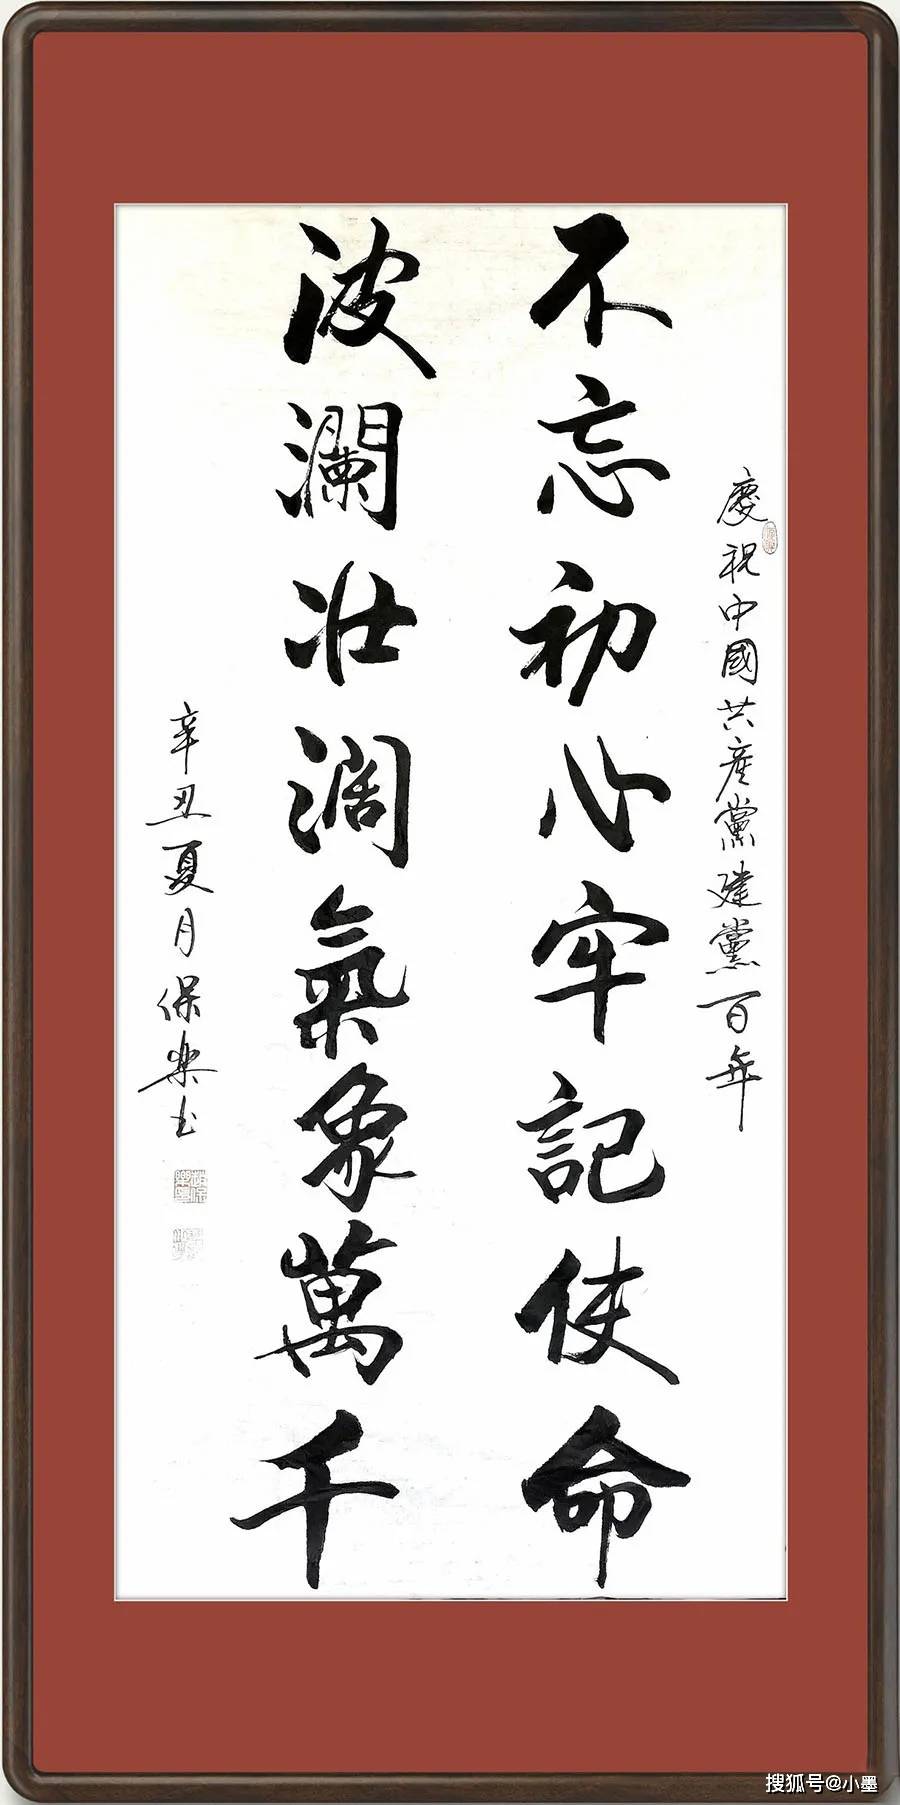 慶祝中國共產黨建黨百年
不忘初心牢記使命
波瀾壯濶氣象萬千
辛丑夏月保樂书
搜狐号@小墨